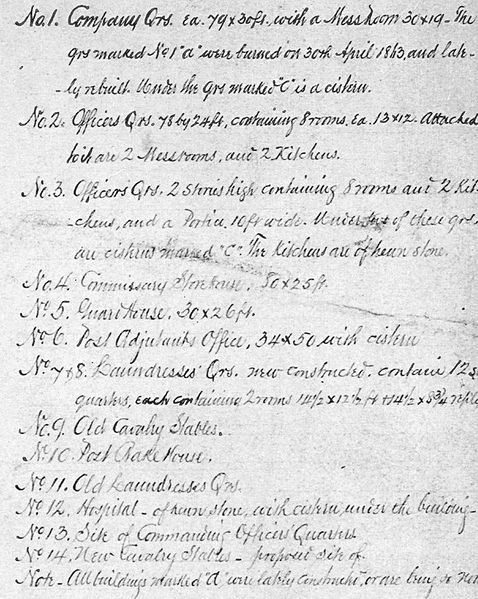 No. 1. Company Qrs. ea. 79 x 30 ft. with a Mess Room 30 x 19 - The
qrs marked No 1 "a" were burned on 30th April 1863, and late-
-ly rebuilt. Under the qrs marked "C" is a cistern.
No. 2. Officers Qrs. 78 by 24 ft, containing 8 rooms. Ea. 13 x 12. Attached
to it are 2 Messrooms, and 2 Kitchens.
No. 3. Officers' Qrs. 2 Stories high containing 8 rooms and 2 Kit-
-chens, and a Portico, 10 ft wide. Under of these qrs.
are cisterns marked "C". The Kitchens are of hewn stone.
No. 4. Commissary Storehouse. 50 x 25 ft.
No 5. Guard House, 30 x 26 ft.
No 6. Post Adjutants Office, 34 x 50 with cistern
No 7 & 8. Laundresses' Qrs. new constructed. contain 12
quarters, each containing 2 rooms 14½ x 12½ ft + 14½ x 8¾
No. 9. Old Cavalry Stables.
No 10. Post Bake House.
No 11. Old Laundresses Qrs.
No 12. Hospital - of hewn stone, with cistern under the building -
No 13. Site of Commanding Officers' Quarters
No 14. New Cavalry Stables - proposed site of
Note - All buildings marked "A" were lately constructed, or are being so now